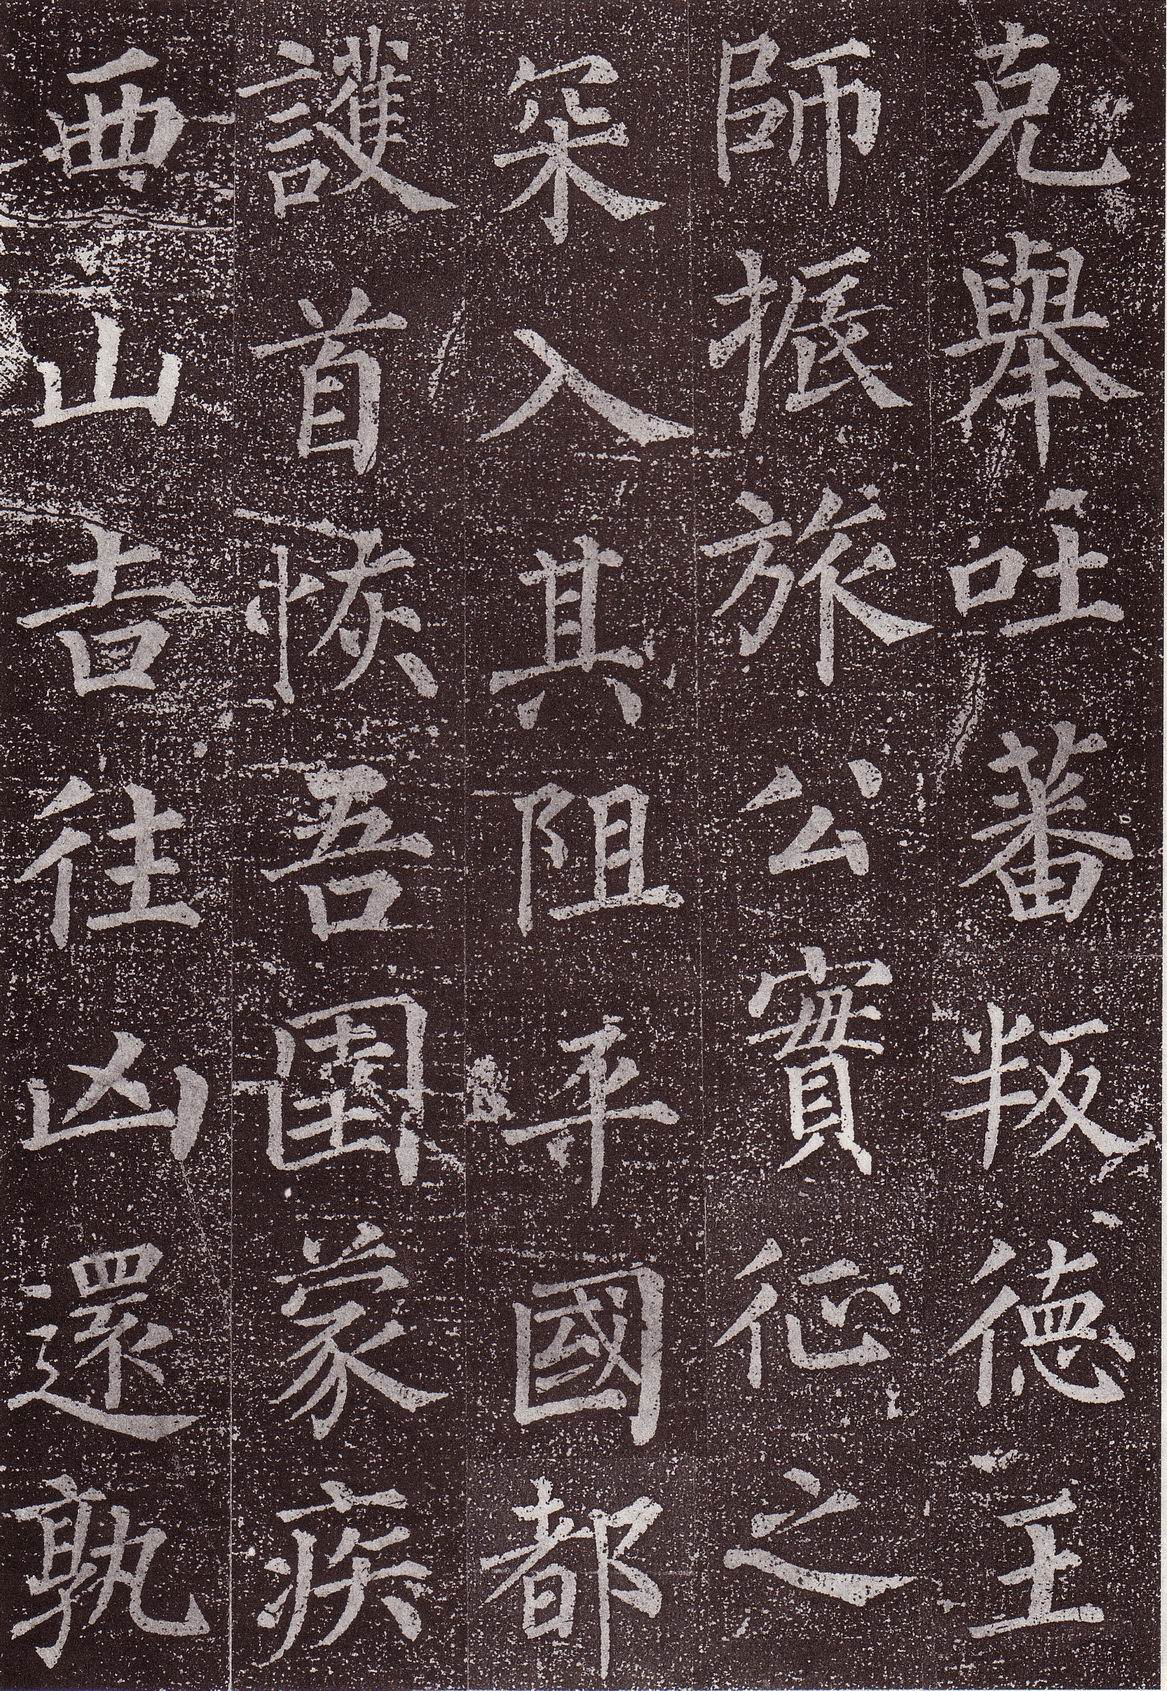 克舉吐蕃叛德王
師振旅公實征之
罙入其阻平國都
護首恢吾圉蒙疾
西山吉往凶還孰